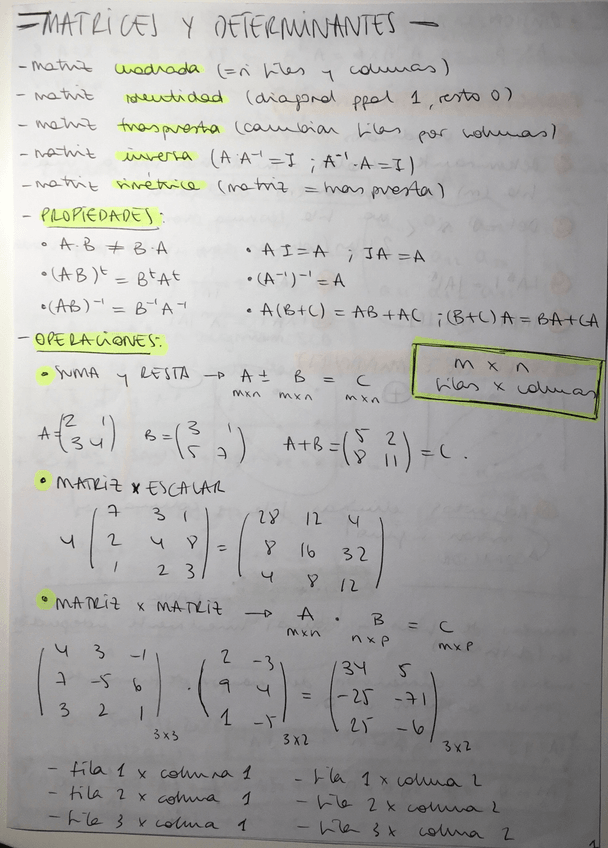 MATRICES Y DETERMINANTES
- matriz cuadrada (= nº filas y columnas)
- matriz identidad (diagonal ppal 1, resto 0)
- matriz traspuesta (cambiar filas por columnas)
- matriz inversa (A·A⁻¹ = I ; A⁻¹·A = I)
- matriz simétrica (matriz = traspuesta)
- PROPIEDADES:
• A·B ≠ B·A • AI = A ; IA = A
• (AB)ᵗ = BᵗAᵗ • (A⁻¹)⁻¹ = A
• (AB)⁻¹ = B⁻¹A⁻¹ • A(B+C) = AB+AC ; (B+C)A = BA+CA
- OPERACIONES:
m x n
filas x columnas
• SUMA y RESTA → A ± B = C
mxn mxn mxn
A = (2 1 B = (3 1 A+B = (5 2
3 4) 5 7) 8 11) = C.
• MATRIZ x ESCALAR
7 3 1 28 12 4
4 2 4 8 = 8 16 32
1 2 3 4 8 12
• MATRIZ x MATRIZ → A · B = C
mxn nxp mxp
4 3 -1 2 -3 34 5
7 -5 6 · 9 4 = -25 -71
3 2 1 1 -5 25 -6
3x3 3x2 3x2
- fila 1 x columna 1 - fila 1 x columna 2
- fila 2 x columna 1 - fila 2 x columna 2
- fila 3 x columna 1 - fila 3 x columna 2
1